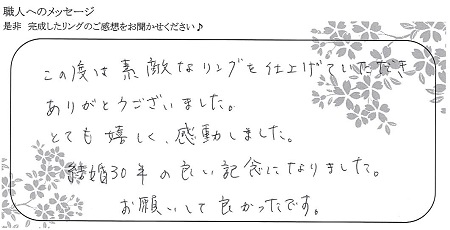 職人へのメッセージ
是非 完成したリングのご感想をお聞かせください♪
この度は素敵なリングを仕上げていただき
ありがとうございました。
とても嬉しく、感動しました。
結婚30年の良い記念になりました。
お願いして良かったです。